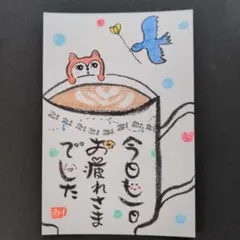 今日も一日
お疲れさま
でした